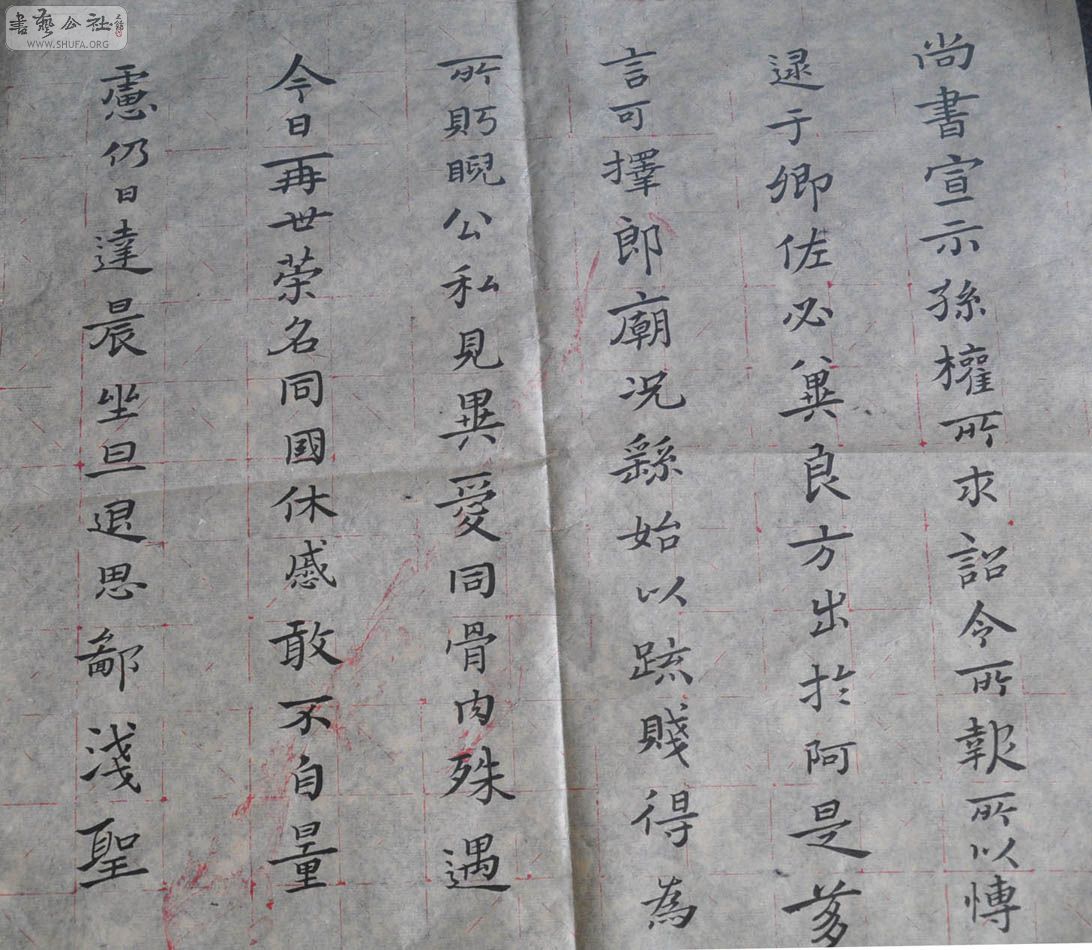 書藝公社
WWW.SHUFA.ORG
尚書宣示孫權所求詔令所報所以博
逮于卿佐必冀良方出於阿是芻
言可擇郎廟况繇始以疏賤得為
所眄睨公私見異愛同骨肉殊遇
今日再世荣名同國休戚敢不自量
慮仍日達晨坐旦退思鄙淺聖